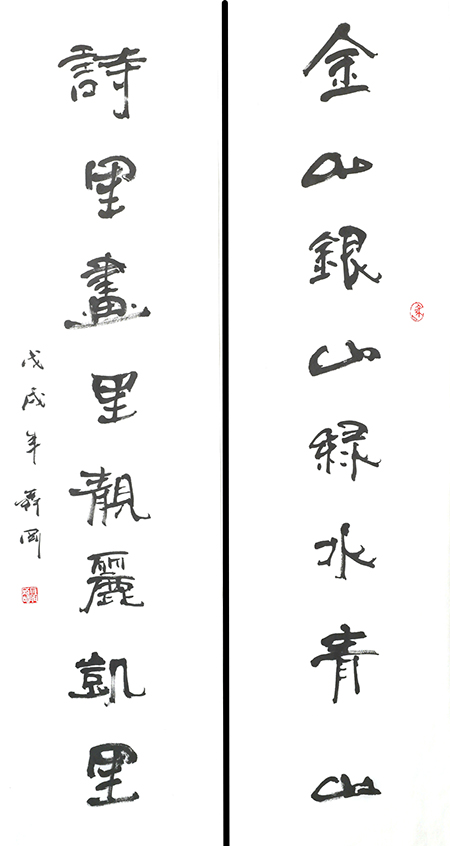 金山銀山緑水青山
詩里畫里靚麗凱里
戊戌年舜岡